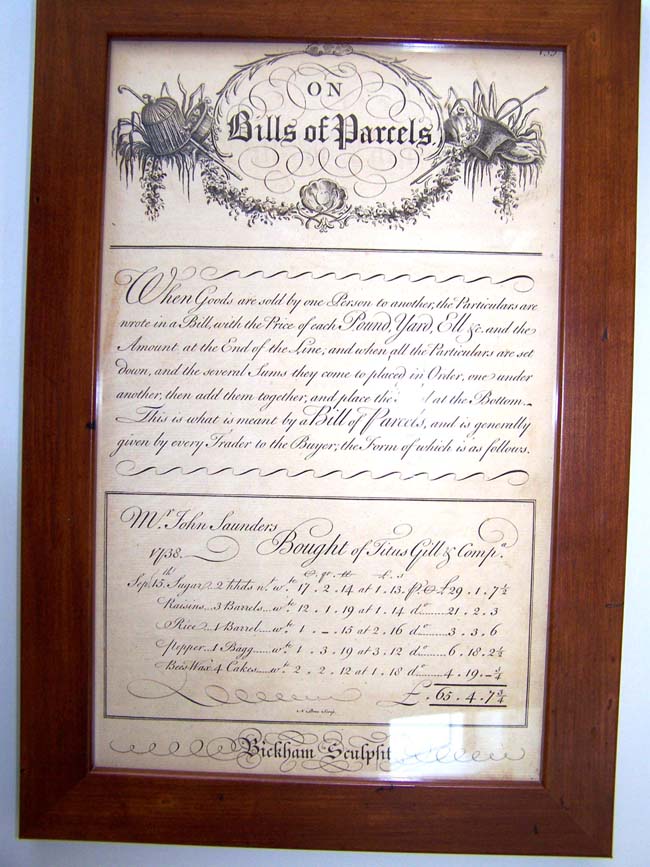 ON
Bills of Parcels.
When Goods are sold by one Person to another, the Particulars are
wrote in a Bill, with the Price of each Pound, Yard, Ell &c. and the
Amount at the End of the Line, and when all the Particulars are set
down, and the several Sums they come to placed in Order, one under
another, then add them together, and place the at the Bottom.
This is what is meant by a Bill of Parcels, and is generally
given by every Trader to the Buyer; the Form of which is as follows.
Mr. John Saunders
1738. Bought of Titus Gill & Compa.
C. qr. lb £. s
Sep. 15th. Sugar 2 hhds nt. wt. 17. 2. 14 at 1. 13. £29. 1. 7½
Raisins 3 Barrels wt. 12. 1. 19 at 1. 14 do 21. 2. 3
Rice 1 Barrel wt. 1. -. 15 at 2. 16 do 3. 3. 6
Pepper 1 Bagg wt. 1. 3. 19 at 3. 12 do 6. 18. 2½
Bees Wax 4 Cakes wt. 2. 2. 12 at 1. 18 do 4. 19. -¾
£. 65. 4. 7¾
Bickham Sculpsit